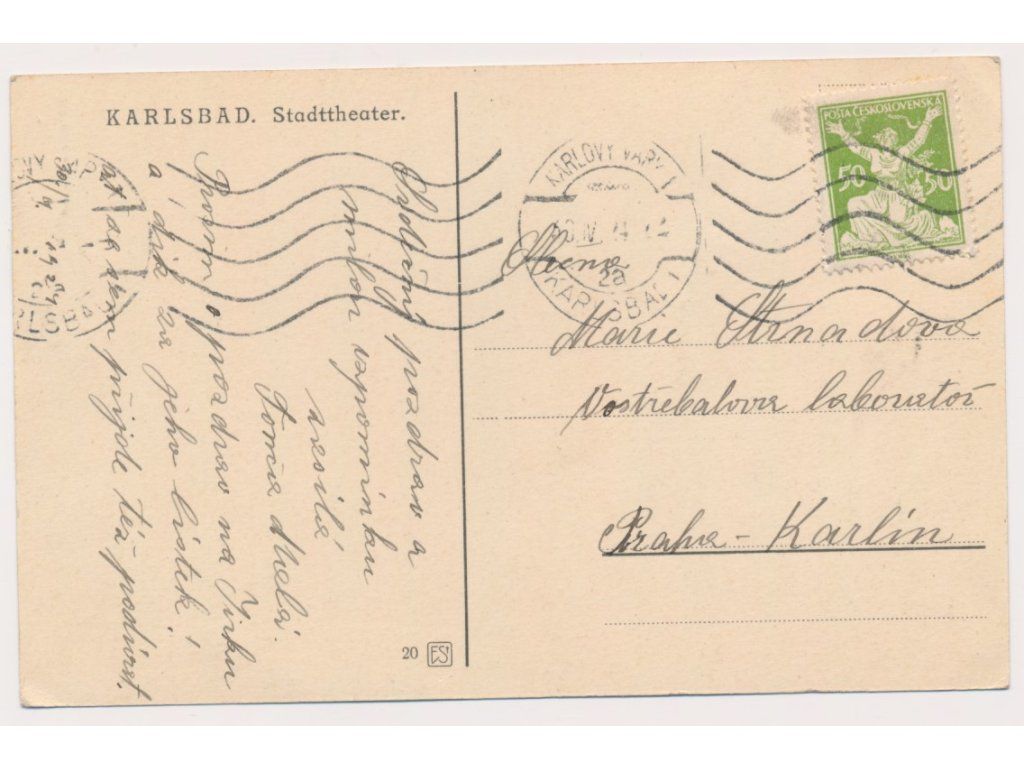 KARLSBAD. Stadttheater.
Srdečný pozdrav a
milou vzpomínku
zasílá
Tonča Melá.
Prosím o pozdrav na Jirku
a dík za jeho lístek!
přijde též podívat.
20
POŠTA ČESKOSLOVENSKÁ
50 50
KARLOVY VARY 1
2a
KARLSBAD 1
Slečna
Marie Strnadova
Vostřebalova laboratoř
Praha - Karlín